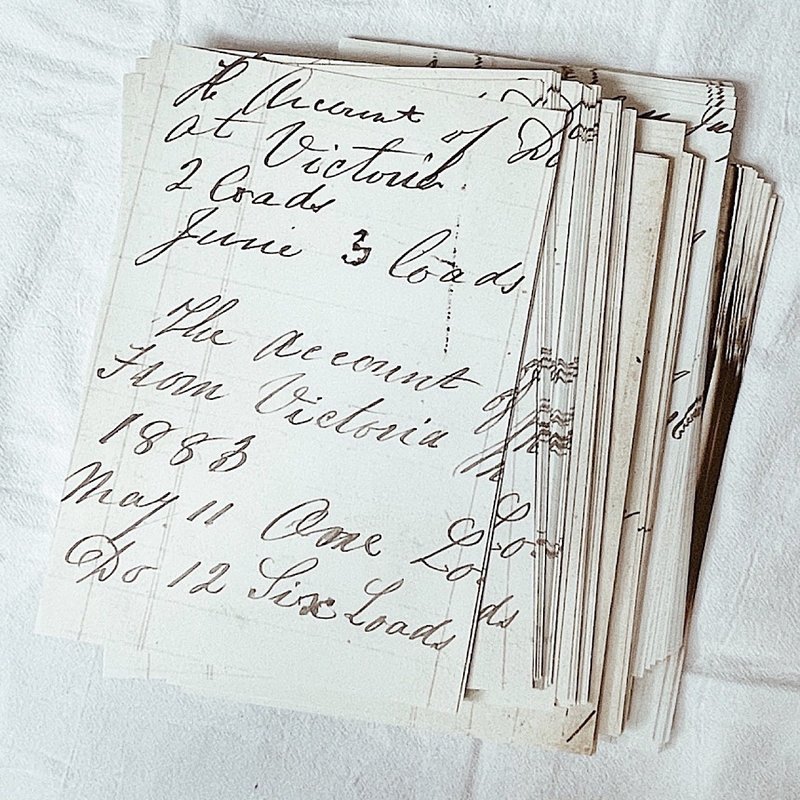 The Account of Do
at Victoria
2 loads
June 3 loads
The account of
From Victoria
1883
May 11 One Lo
Do 12 Six Loads
Lo
ds